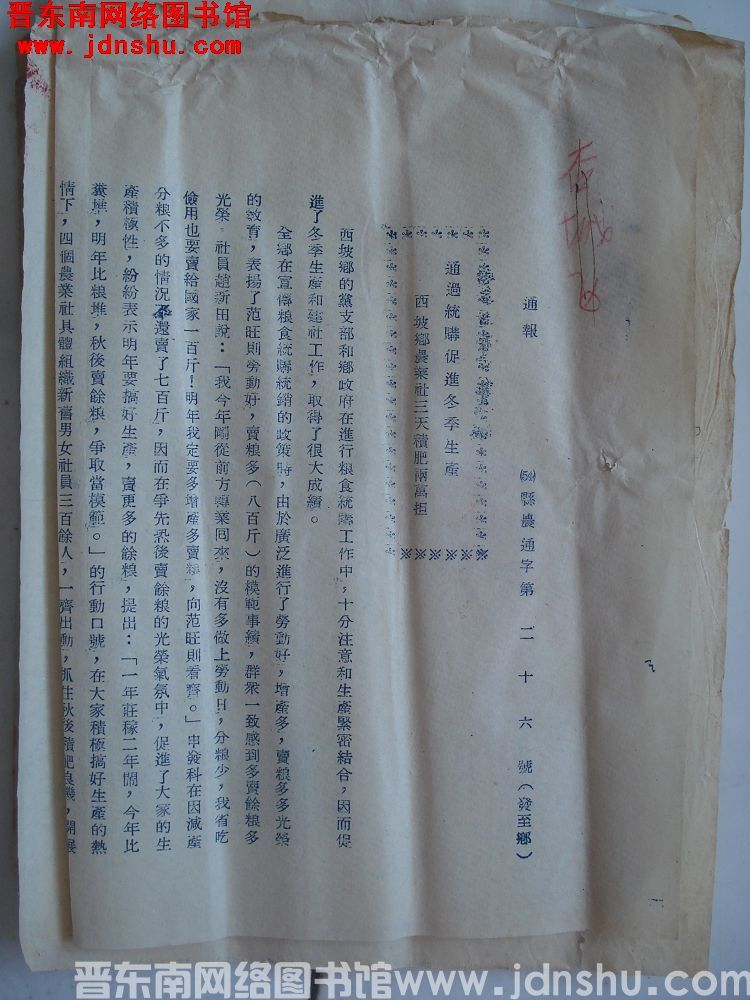 晋东南网络图书馆
www.jdnshu.com
通報
(54)縣農通字第二十六號(發至鄉)
通過統購促進冬季生產
西坡鄉農業社三天積肥兩萬担
西坡鄉的黨支部和鄉政府在進行粮食統購工作中,十分注意和生產緊密結合,因而促
進了冬季生產和建社工作,取得了很大成績。
全鄉在宣傳粮食統購統銷的政策時,由於廣泛進行了勞動好,增產多,賣粮多多光榮
的教育,表揚了范旺則勞動好,賣粮多(八百斤)的模範事績,群衆一致感到多賣餘粮多
光榮。社員趙新田說:「我今年剛從前方轉業回來,沒有多做上勞動日,分粮少,我省吃
儉用也要賣給國家一百斤!明年我定要多增產多賣粮,向范旺則看齊。」申發科在因減產
分粮不多的情況下還賣了七百斤,因而在爭先恐後賣餘粮的光榮氣氛中,促進了大家的生
產積極性,紛紛表示明年要搞好生產,賣更多的餘粮,提出:「一年莊稼二年鬧,今年比
糞堆,明年比粮堆,秋後賣餘粮,爭取當模範。」的行動口號,在大家積極搞好生產的熱
情下,四個農業社具體組織新舊男女社員三百餘人,一齊出動,抓住秋後積肥良機,開展
晋东南网络图书馆www.jdnshu.com